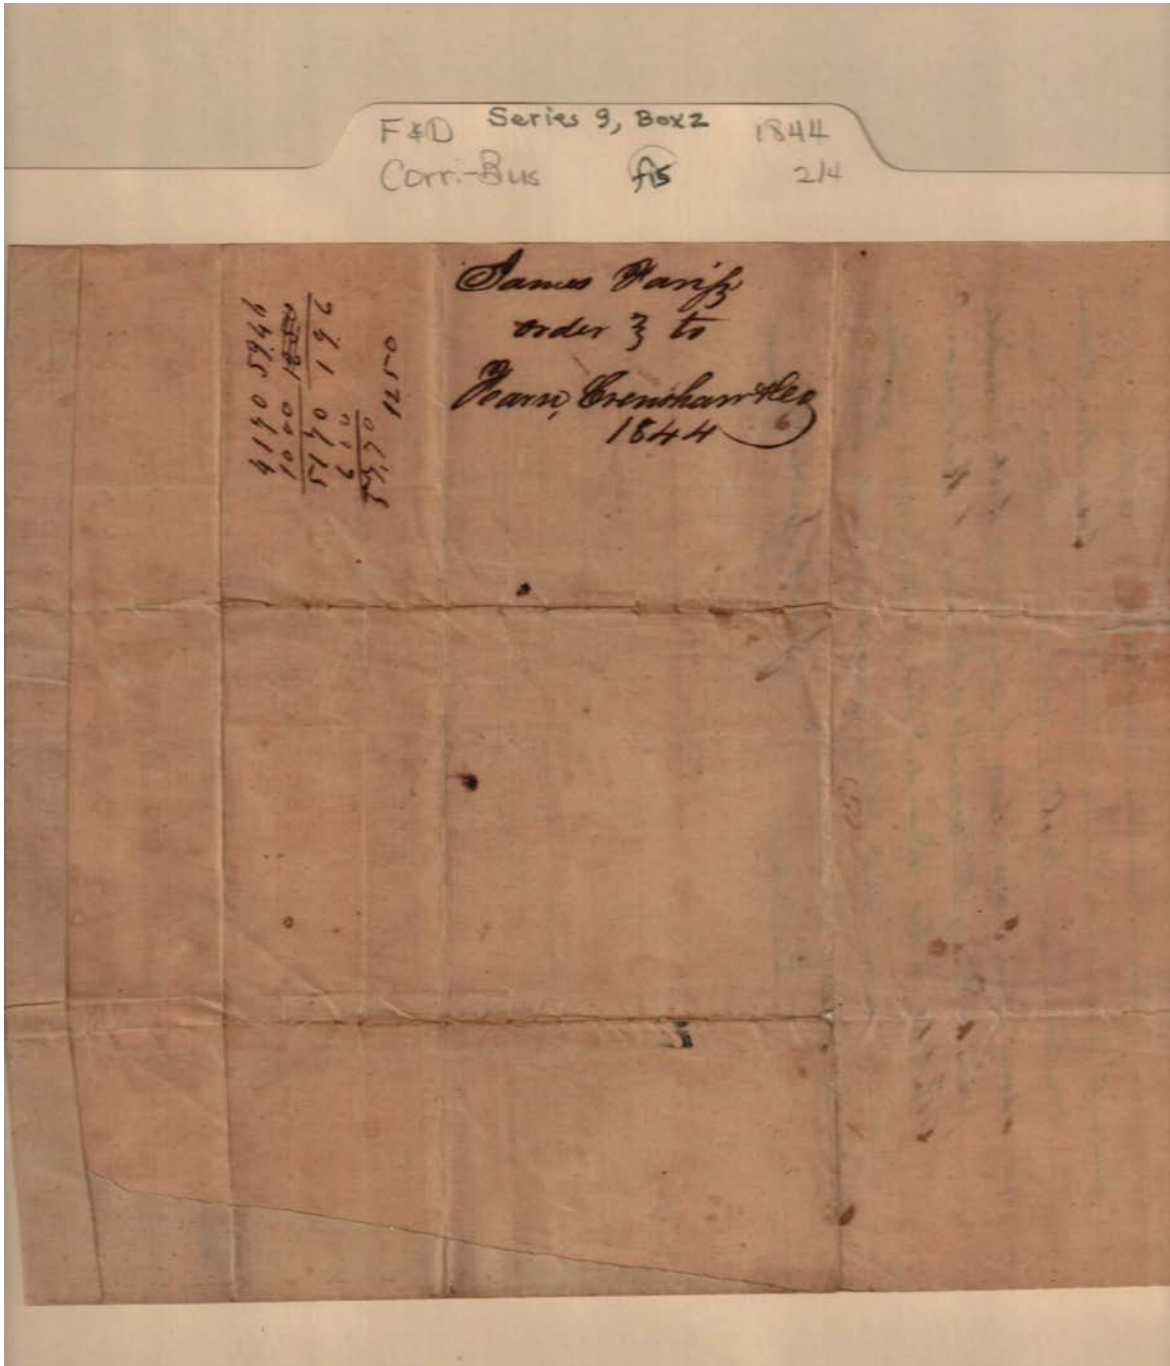 F&D Series 9, Box 2 1844
Corr.-Bus f15 2/4
James Fariss
order } to
Fearn, Crenshaw & Co
1844
6
4190 5946
1000
5190 196
600
5790
1250